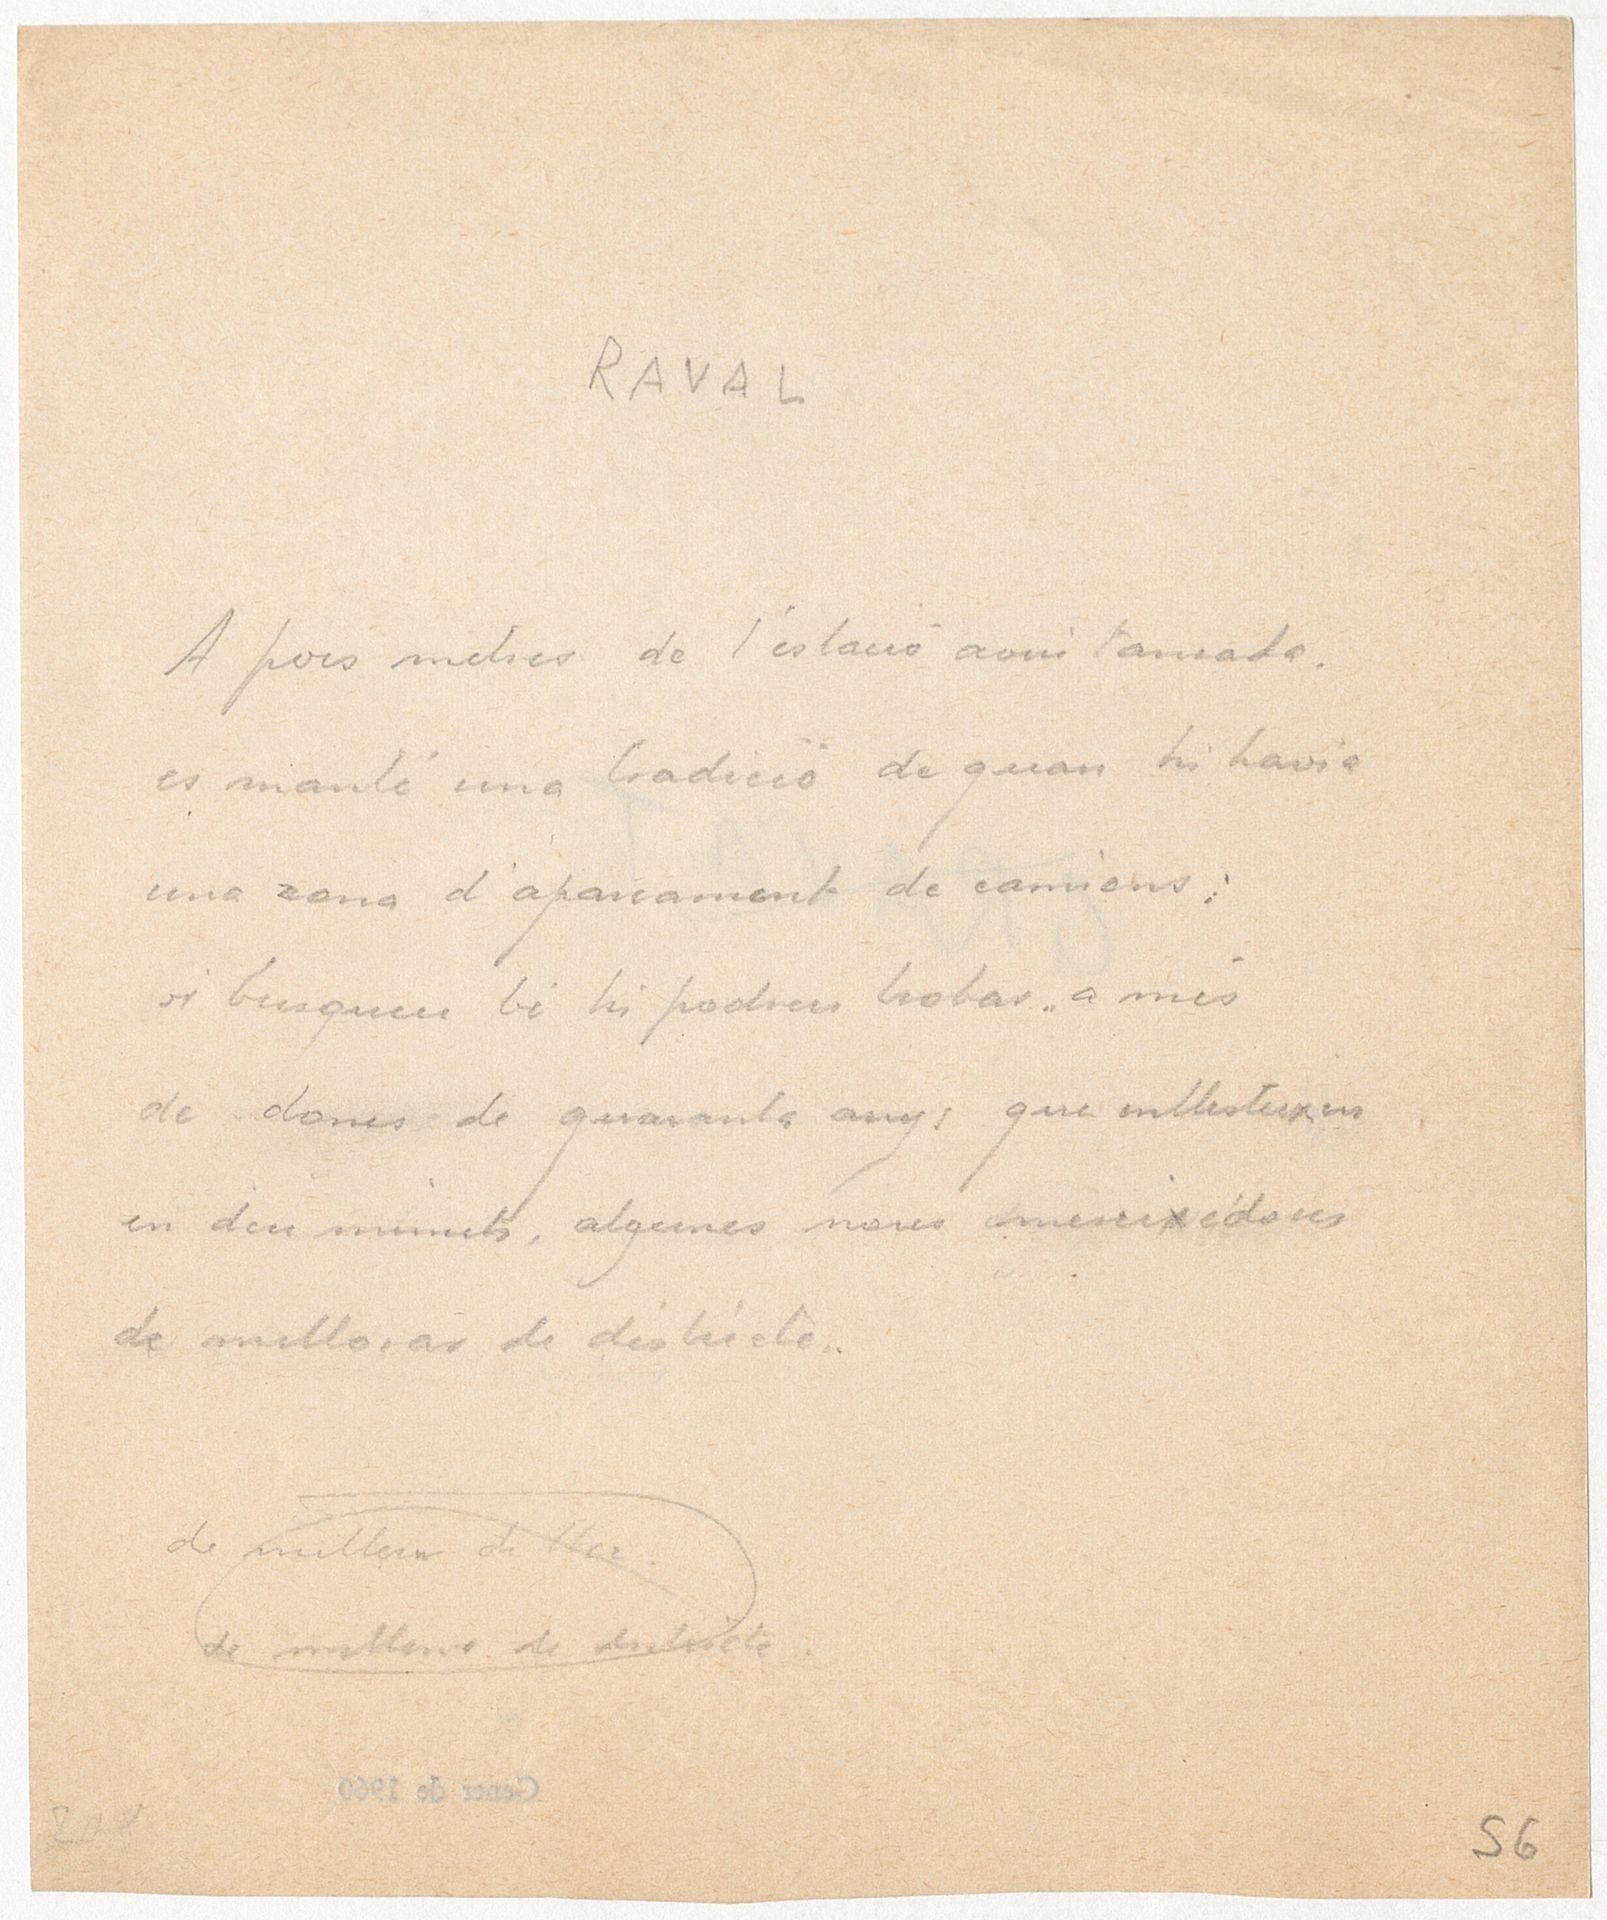 RAVAL
A pocs metres de l'estació avui tancada.
es manté una tradició de quan hi havia
una zona d'aparcament de camions:
si busqueu bé hi podreu trobar, a més
de dones de quaranta anys que enllesteixen
en deu minuts, algunes noies
de millorar de districte..
de millorar de lloc.
de millorar de districte.
Gener de 1960
56